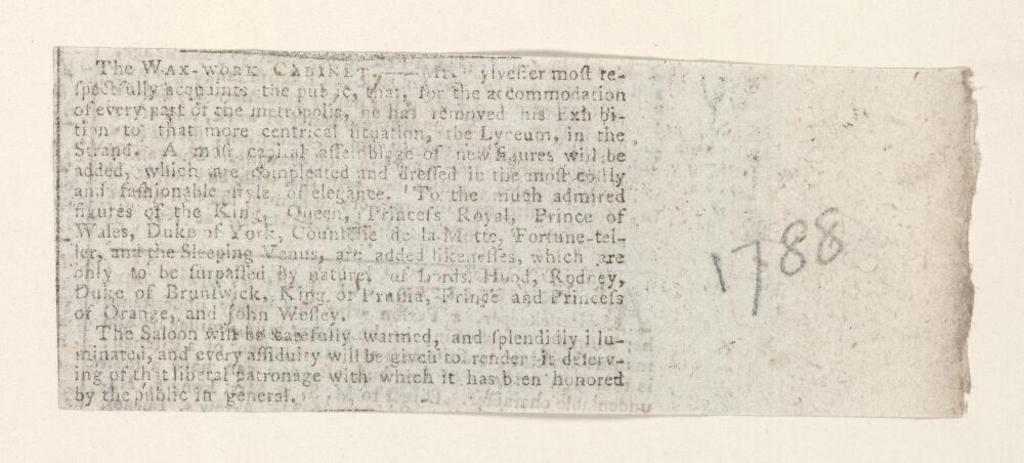 The WAX-WORK CABINET.——Mr. ylvester moſt re-
ſpectfully acquaints the pub ic, that, for the accommodation
of every part of the metropolis, he has removed his Exh bi-
tion to that more centrical ſituation, the Lyceum, in the
Strand. A moſt capital aſſemblage of new figures will be
added, which are compleated and dreſſed in the moſt coſtly
and faſhionable ſtyle of elegance. To the much admired
figures of the King, Queen, Princeſs Royal, Prince of
Wales, Duke of York, Counteſſe de la Motte, Fortune-tel-
ler, and the Sleeping Venus, are added likeneſſes, which are
only to be ſurpaſſed by nature, of Lords Hood, Rodney,
Duke of Brunſwick, King of Pruſſia, Prince and Princeſs
of Orange, and John Weſley.
The Saloon will be carefully warmed, and ſplendidly i lu-
minated, and every aſſiduity will be given to render it deſerv-
ing of that liberal patronage with which it has been honored
by the public in general.
1788